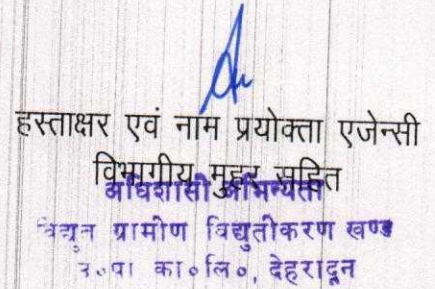 हस्ताक्षर एवं नाम प्रयोक्ता एजेन्सी
विभागीय मुहर सहित
अधिशासी अभियन्ता
विद्युत ग्रामीण विद्युतीकरण खण्ड
उ०पा का०लि०, देहरादून